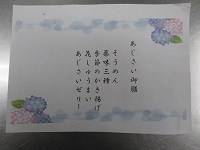 あじさい御膳
そうめん
薬味三種
季節のかき揚げ
花しゅうまい
あじさいゼリー